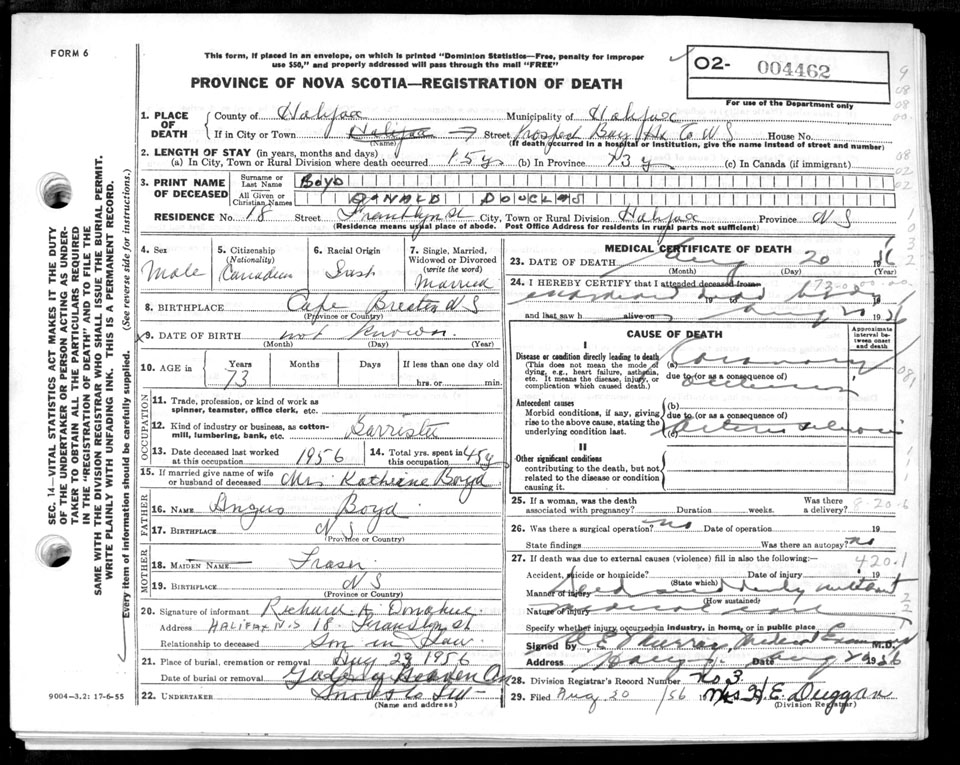 FORM 6
This form, if placed in an envelope, on which is printed "Dominion Statistics—Free, penalty for improper
use $50," and properly addressed will pass through the mail "FREE"
PROVINCE OF NOVA SCOTIA—REGISTRATION OF DEATH
O2- 004462
For use of the Department only
SEC. 14—VITAL STATISTICS ACT MAKES IT THE DUTY
OF THE UNDERTAKER OR PERSON ACTING AS UNDER-
TAKER TO OBTAIN ALL THE PARTICULARS REQUIRED
IN THE "REGISTRATION OF DEATH" AND TO FILE THE
SAME WITH THE DIVISION REGISTRAR WHO SHALL ISSUE THE BURIAL PERMIT.
WRITE PLAINLY WITH UNFADING INK. THIS IS A PERMANENT RECORD.
Every item of information should be carefully supplied. (See reverse side for instructions.)
1. PLACE OF DEATH
County of Halifax Municipality of Halifax
If in City or Town Halifax Street Prospect Bay House No.
(Name) (If death occurred in a hospital or institution, give the name instead of street and number)
2. LENGTH OF STAY (in years, months and days)
(a) In City, Town or Rural Division where death occurred 15y (b) In Province 73y (c) In Canada (if immigrant)
3. PRINT NAME OF DECEASED
Surname or Last Name BOYD
All Given or Christian Names DONALD DOUGLAS
RESIDENCE No. 18 Street Franklyn St City, Town or Rural Division Halifax Province N S
(Residence means usual place of abode. Post Office Address for residents in rural parts not sufficient)
4. Sex Male
5. Citizenship (Nationality) Canadian
6. Racial Origin Irish
7. Single, Married, Widowed or Divorced (write the word) Married
8. BIRTHPLACE Cape Breton N S
(Province or Country)
9. DATE OF BIRTH not known
(Month) (Day) (Year)
10. AGE in Years 73 Months Days If less than one day old
hrs. or min.
OCCUPATION
11. Trade, profession, or kind of work as
spinner, teamster, office clerk, etc.
12. Kind of industry or business, as cotton-
mill, lumbering, bank, etc. Barrister
13. Date deceased last worked at this occupation 1956
14. Total yrs. spent in this occupation 45y
15. If married give name of wife
or husband of deceased Mrs Katherine Boyd
FATHER
16. NAME Angus Boyd
17. BIRTHPLACE N S
(Province or Country)
MOTHER
18. MAIDEN NAME Fraser
19. BIRTHPLACE N S
(Province or Country)
20. Signature of informant Richard A. Donahue
Address HALIFAX N.S 18 Franklyn St
Relationship to deceased Son in Law
21. Place of burial, cremation or removal Aug 23 1956
Date of burial or removal Gate of Heaven Cem
22. UNDERTAKER Snow & Co Ltd
(Name and address)
9004—3.2: 17-6-55
MEDICAL CERTIFICATE OF DEATH
23. DATE OF DEATH Aug 20
(Month) (Day) (Year)
24. I HEREBY CERTIFY that I attended deceased from
and last saw h alive on Aug 20 1956
CAUSE OF DEATH
Approximate interval between onset and death
I
Disease or condition directly leading to death
(This does not mean the mode of
dying, e.g., heart failure, asthenia,
etc. It means the disease, injury, or
complication which caused death.)
(a) Coronary
due to (or as a consequence of)
Antecedent causes
Morbid conditions, if any, giving
rise to the above cause, stating the
underlying condition last.
(b)
due to (or as a consequence of)
(c)
II
Other significant conditions
contributing to the death, but not
related to the disease or condition
causing it.
25. If a woman, was the death
associated with pregnancy? Duration weeks. Was there a delivery?
8-20-6
26. Was there a surgical operation? no Date of operation 19
State findings Was there an autopsy? no
27. If death was due to external causes (violence) fill in also the following:—
420.1
Accident, suicide or homicide? Date of injury 19
(State which)
Manner of injury
(How sustained)
Nature of injury
Specify whether injury occurred in industry, in home, or in public place
Signed by Murray Medical Examiner M.D.
Address Date Aug 20 1956
28. Division Registrar's Record Number No 3
29. Filed Aug 20 /56 19 Mrs H. E. Duggan
(Division Registrar)